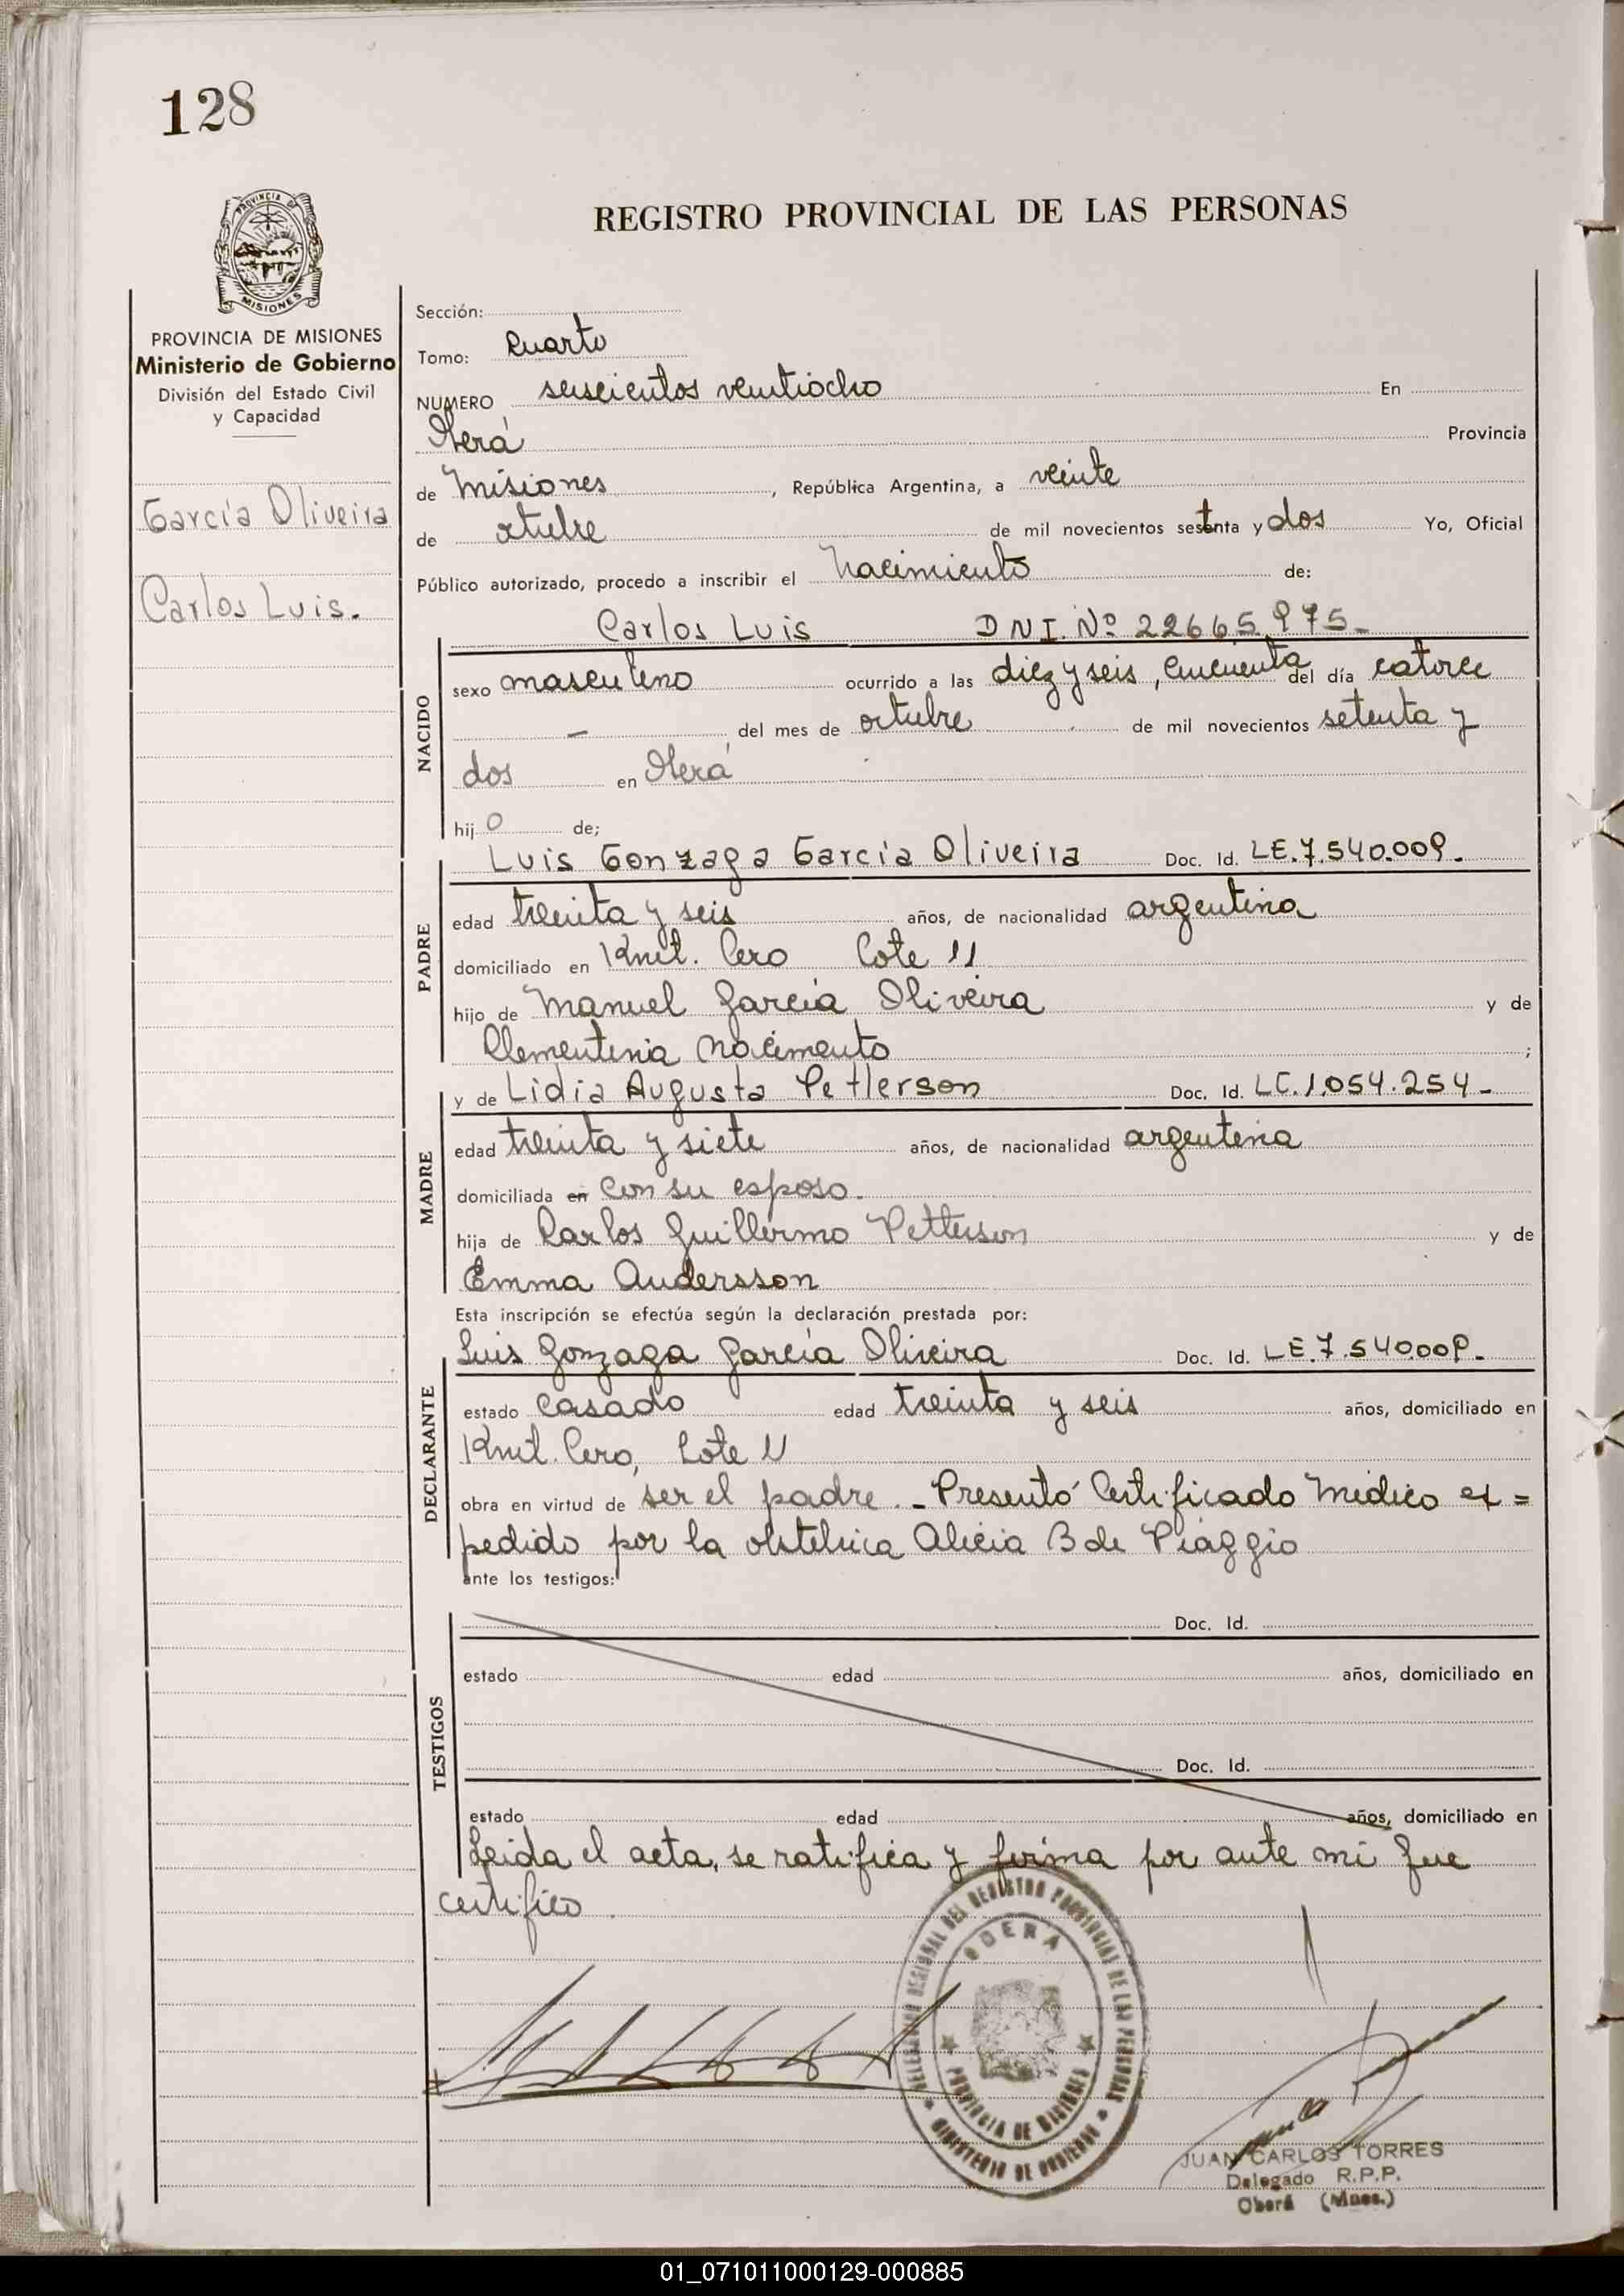 128
REGISTRO PROVINCIAL DE LAS PERSONAS
PROVINCIA DE
MISIONES
PROVINCIA DE MISIONES
Ministerio de Gobierno
División del Estado Civil
y Capacidad
García Oliveira
Carlos Luis.
Sección:
Tomo: Cuarto
NUMERO seiscientos veintiocho En
Oberá Provincia
de Misiones, República Argentina, a veinte
de octubre de mil novecientos setenta y dos Yo, Oficial
Público autorizado, procedo a inscribir el Nacimiento de:
Carlos Luis DNI. Nº 22665975_
NACIDO
sexo masculino ocurrido a las diez y seis, cincuenta del día catorce
— del mes de octubre de mil novecientos setenta y
dos en Oberá
hijo de;
Luis Gonzaga García Oliveira Doc. Id. LE.7.540.009.
PADRE
edad treinta y seis años, de nacionalidad argentina
domiciliado en Kmt. Cero Lote 11
hijo de Manuel García Oliveira y de
Clementina Nacimento ;
y de Lidia Augusta Petterson Doc. Id. LC.1.054.254-
MADRE
edad treinta y siete años, de nacionalidad argentina
domiciliada en con su esposo.
hija de Carlos Guillermo Petterson y de
Emma Andersson
Esta inscripción se efectúa según la declaración prestada por:
Luis Gonzaga García Oliveira Doc. Id. LE.7.540.009.
DECLARANTE
estado casado edad treinta y seis años, domiciliado en
Kmt. Cero, Lote 11
obra en virtud de ser el padre.- Presentó Certificado Médico ex=
pedido por la obstetrica Alicia B de Piaggio
ante los testigos:
Doc. Id.
TESTIGOS
estado edad años, domiciliado en
Doc. Id.
estado edad años, domiciliado en
Leida el acta, se ratifica y firma por ante mi que
certifico.
DELEGACION REGIONAL DEL REGISTRO PROVINCIAL DE LAS PERSONAS
OBERA
PROVINCIA DE MISIONES
MINISTERIO DE GOBIERNO
JUAN CARLOS TORRES
Delegado R.P.P.
Oberá (Mnes.)
01_071011000129-000885